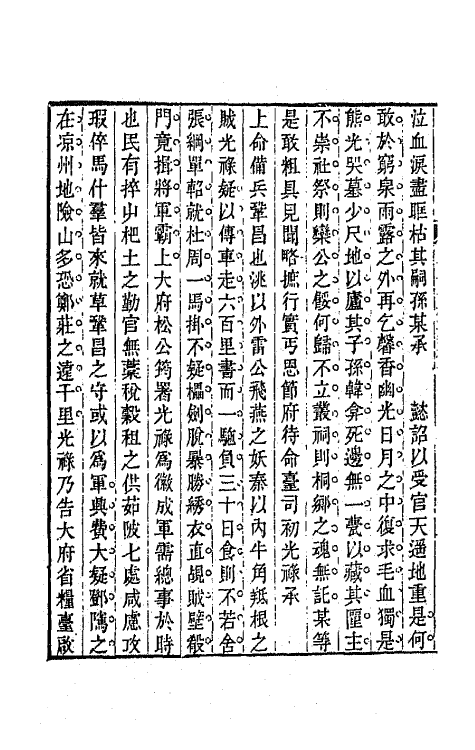 泣血淚盡眶枯其嗣孫某承　　懿詔以受官天遥地重是何
敢於窮泉雨露之外再乞馨香幽光日月之中復求毛血獨是
熊光哭墓少尺地以廬其子孫韓弇死邊無一甕以藏其匰主
不祟社祭則欒公之骰何歸不立叢祠則桐鄉之魂無託某等
是敢粗具見聞略摭行實丐恩節府待命臺司初光祿承
上命備兵鞏昌也洮以外雷公飛燕之妖秦以內牛角觝根之
賊光祿疑以傳車走六百里書而一騐負三十日食則不若舍
張綱單軺就杜周一馬掛不疑櫑劍脫暴勝綉衣直覘賊壁殽
門竟揖將軍霸上大府松公筠署光祿爲徽成軍需總事於時
也民有捽屮杷土之勤官無藁稅穀租之供茹陂七處咸慮攻
瑕倅馬什羣皆來就草鞏昌之守或以爲軍興費大疑鄧隲之
在凉州地險山多恐鄭莊之遠千里光祿乃告大府省糧臺啟